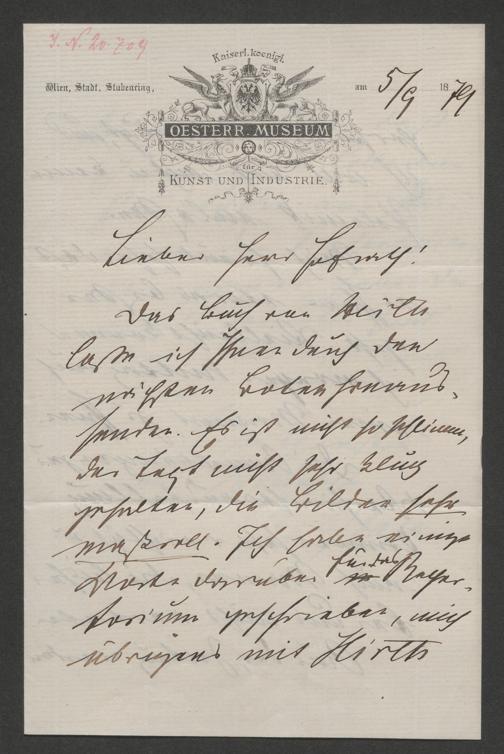 I. N. 20.709
Kaiserl. koenigl.
Wien, Stadt, Stubenring, am 5/9 1879
OESTERR. MUSEUM
für
KUNST UND INDUSTRIE.
Lieber Herr Hofrath!
Das Buch von Hirth
lasse ich Ihnen durch den
nächsten Boten hinaus-
senden. Es ist nicht so schlimm,
der Text nicht sehr klug
gehalten, die Bilder sehr
maßvoll. Ich habe einige
Worte darüber für das Reper-
torium geschrieben, mich
übrigens mit Hirth